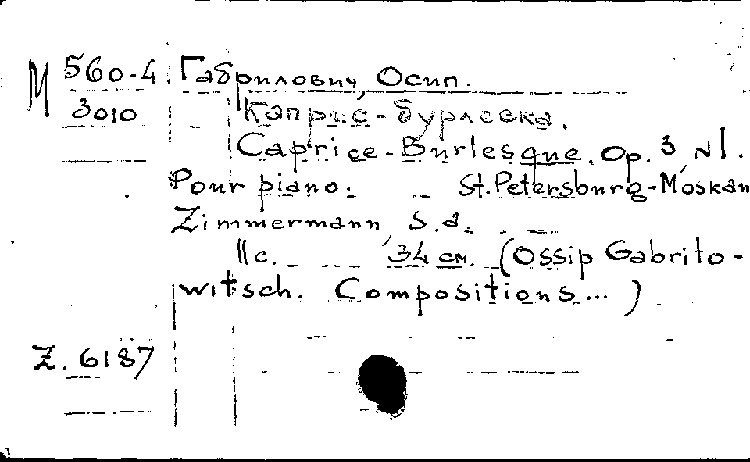 М 560-4 Габрилович, Осип.
3010 Каприс-бурлеска.
Caprice-Burlesque. Op. 3 N1.
Pour piano. St. Petersburg-Moskau
Zimmermann, s.a.
11 с. 34 см. (Ossip Gabrilo-
witsch. Compositions...)
Z. 6187